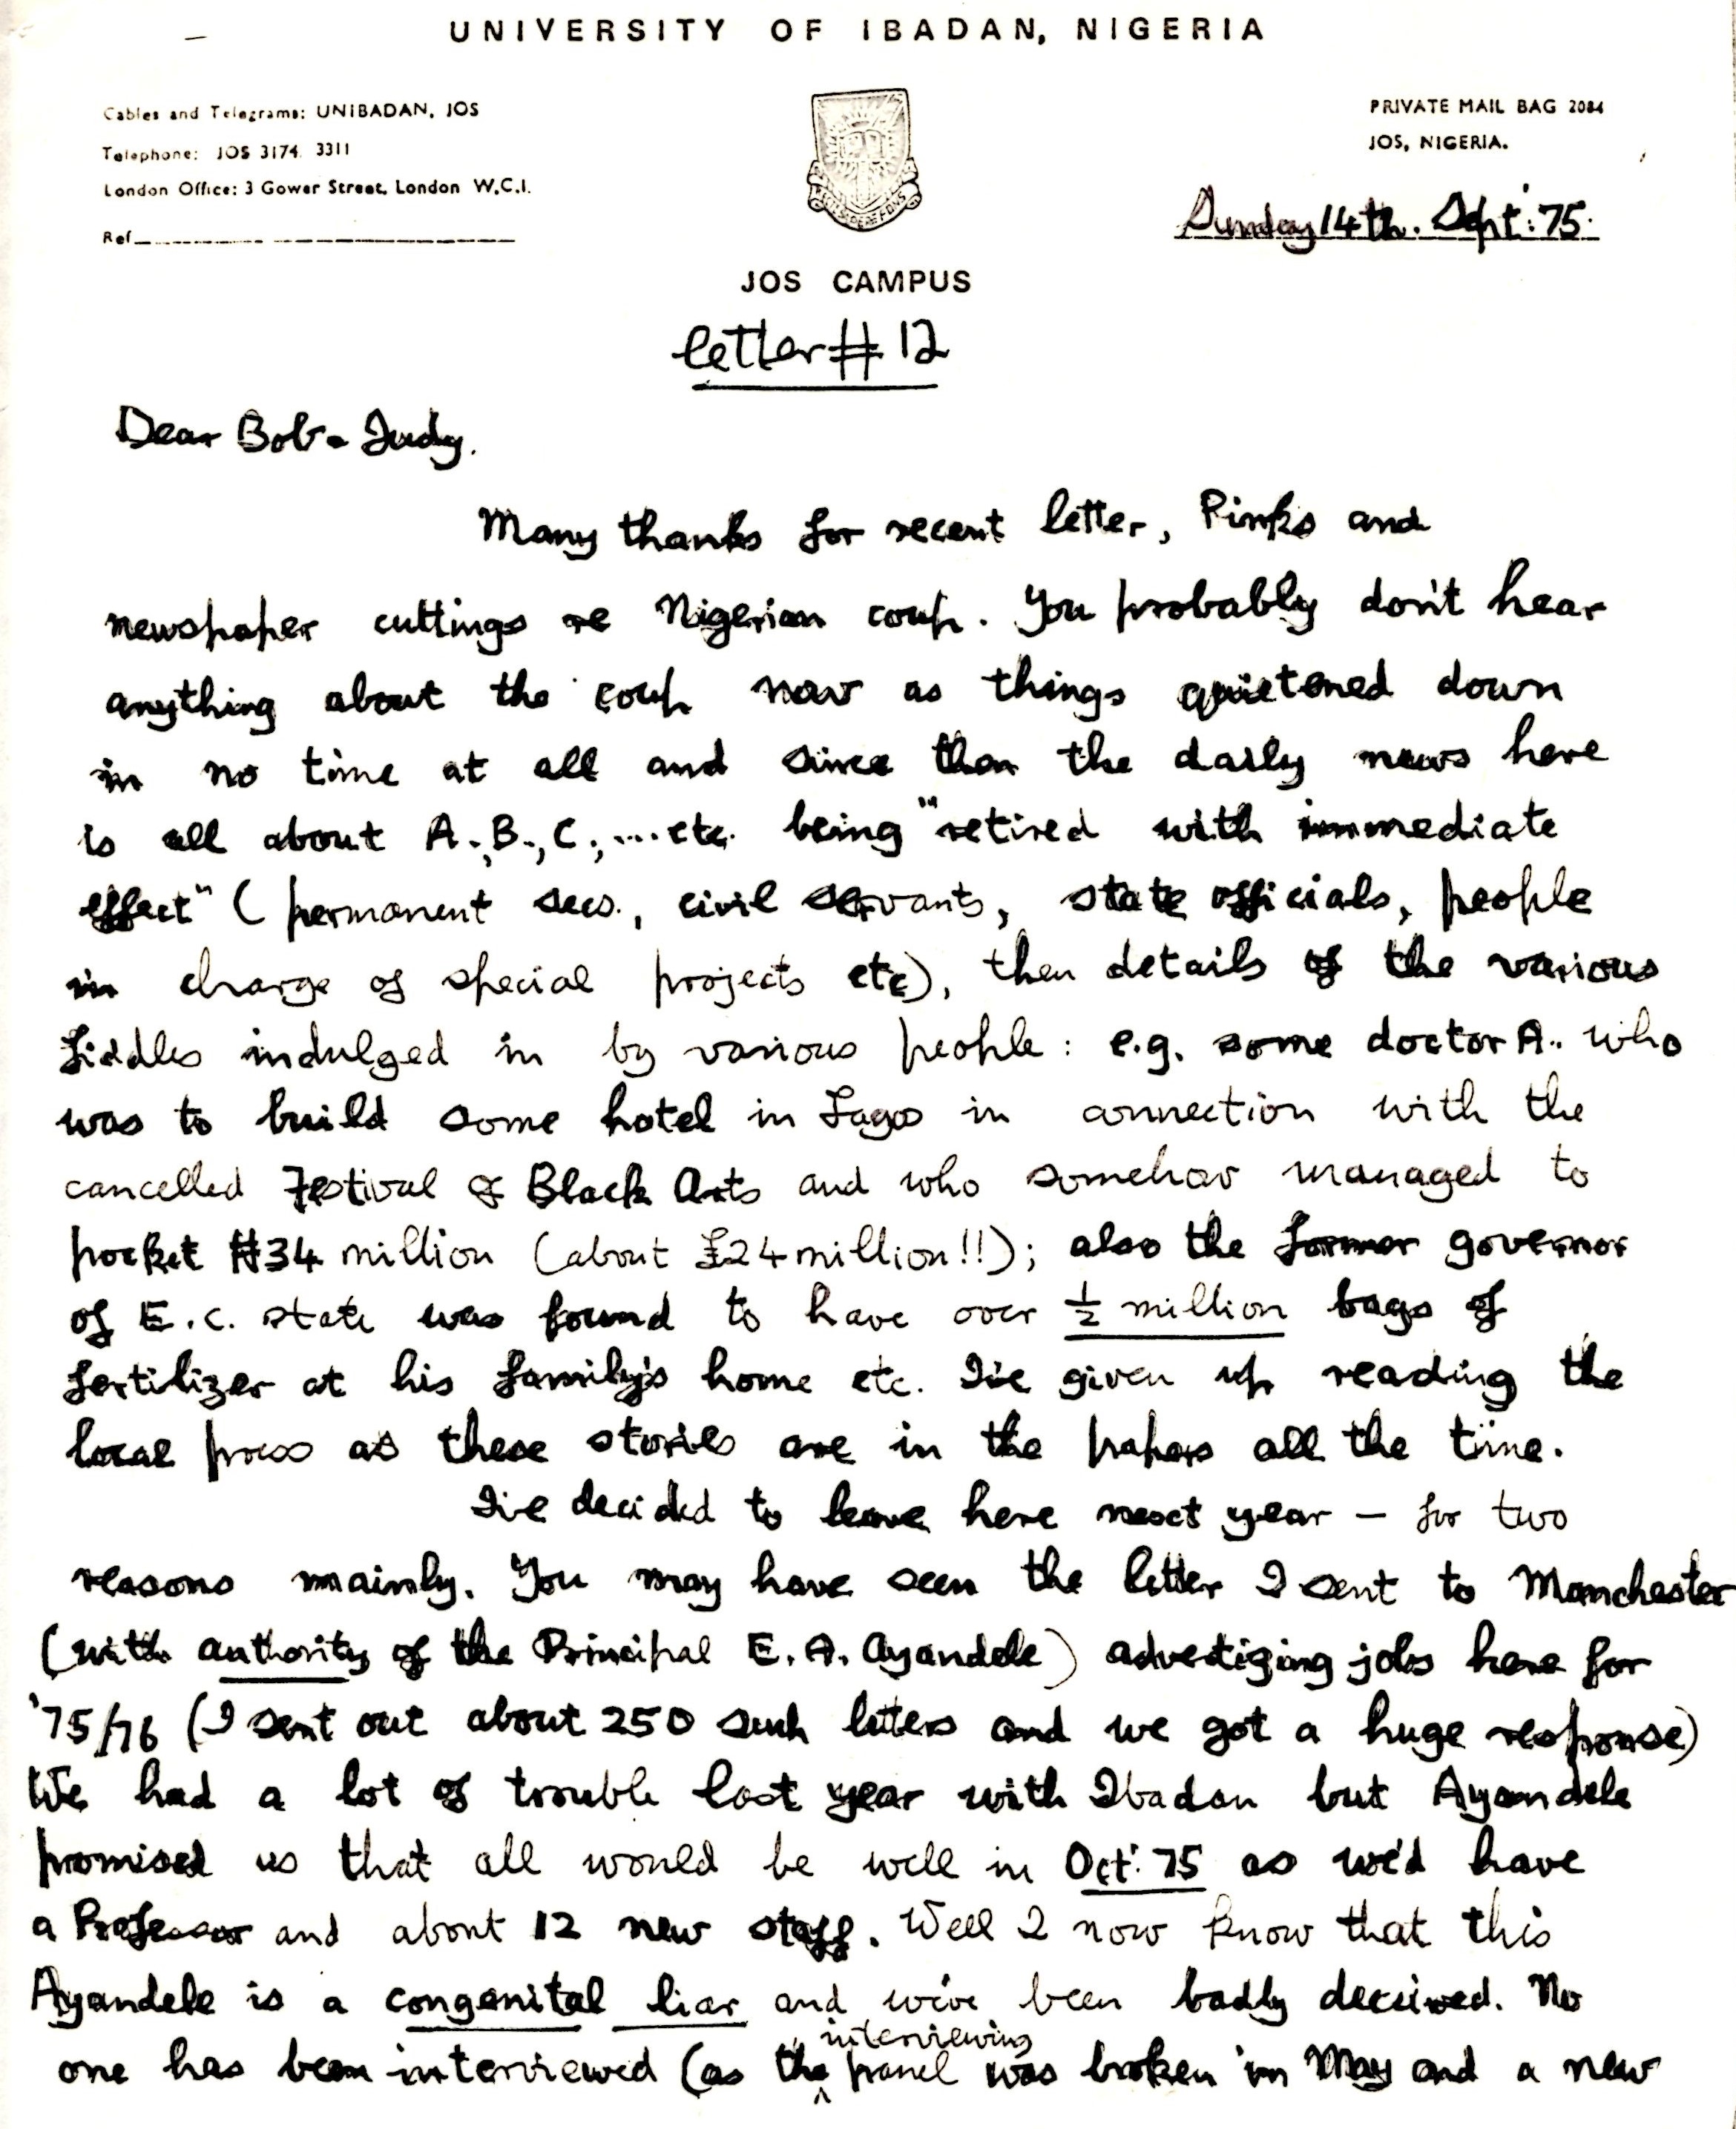 UNIVERSITY OF IBADAN, NIGERIA
Cables and Telegrams: UNIBADAN, JOS
Telephone: JOS 3174, 3311
London Office: 3 Gower Street, London W.C.I.
Ref
PRIVATE MAIL BAG 2084
JOS, NIGERIA.
Sunday 14th. Sept: 75.
JOS CAMPUS
letter # 12
Dear Bob & Judy.
Many thanks for recent letter, Pinks and
newspaper cuttings re Nigerian coup. You probably don't hear
anything about the coup now as things quietened down
in no time at all and since then the daily news here
is all about A., B., C., ... etc. being "retired with immediate
effect" (permanent secs., civil servants, state officials, people
in charge of special projects etc), then details of the various
fiddles indulged in by various people: e.g. some doctor A.. who
was to build some hotel in Lagos in connection with the
cancelled Festival of Black Arts and who somehow managed to
pocket ₦34 million (about £24 million!!); also the former governor
of E.C. state was found to have over ½ million bags of
fertilizer at his family's home etc. I've given up reading the
local press as these stories are in the papers all the time.
I've decided to leave here next year – for two
reasons mainly. You may have seen the letter I sent to Manchester
(with authority of the Principal E.A. Ayandele) advertizing jobs here for
'75/76 (I sent out about 250 such letters and we got a huge response)
We had a lot of trouble last year with Ibadan but Ayandele
promised us that all would be well in Oct: 75 as we'd have
a Professor and about 12 new staff. Well I now know that this
Ayandele is a congenital liar and we've been badly deceived. No
one has been interviewed (as the interviewing panel was broken in May and a new